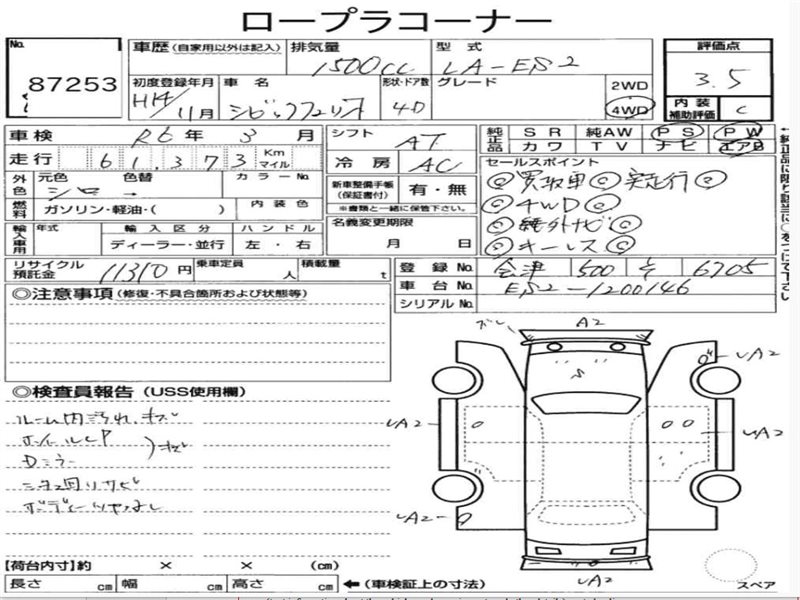 ロープラコーナー
No. 87253
車歴 (自家用以外は記入) 排気量 1500cc 型式 LA-ES2
評価点 3.5
初度登録年月 H14/11月 車名 シビックフェリオ 形状・ドア数 4D グレード 2WD 4WD
内装補助評価 C
車検 R6年 3月 シフト AT
純正品 SR 純AW PS PW
カワ TV ナビ エアB
走行 61,373 Km マイル 冷房 AC
セールスポイント
外色 元色 シロ 色替 → カラーNo.
新車整備手帳 (保証書付) 有・無
※書類と一緒に保管下さい。
◎買取車◎実走行◎
◎4WD◎
◎純外ナビ◎
◎キーレス◎
燃料 ガソリン・軽油・( ) 内装色
名義変更期限 月 日
輸入車用 年式 輸入区分 ディーラー・並行 ハンドル 左・右
リサイクル預託金 11310円 乗車定員 人 積載量 t
登録No. 会津 500 そ 6705
車台No. ES2-1200146
シリアルNo.
←純正品に限り該当に○をつけて下さい
◎注意事項 (修復・不具合箇所および状態等)
◎検査員報告 (USS使用欄)
ルーム内汚れ、キズ
ホイールCP
Dミラー
キズ
下回りサビ
A2
UA2
UA2
UA2
UA2
UA2
【荷台内寸】約 × × (cm)
長さ cm 幅 cm 高さ cm ←(車検証上の寸法)
スペア